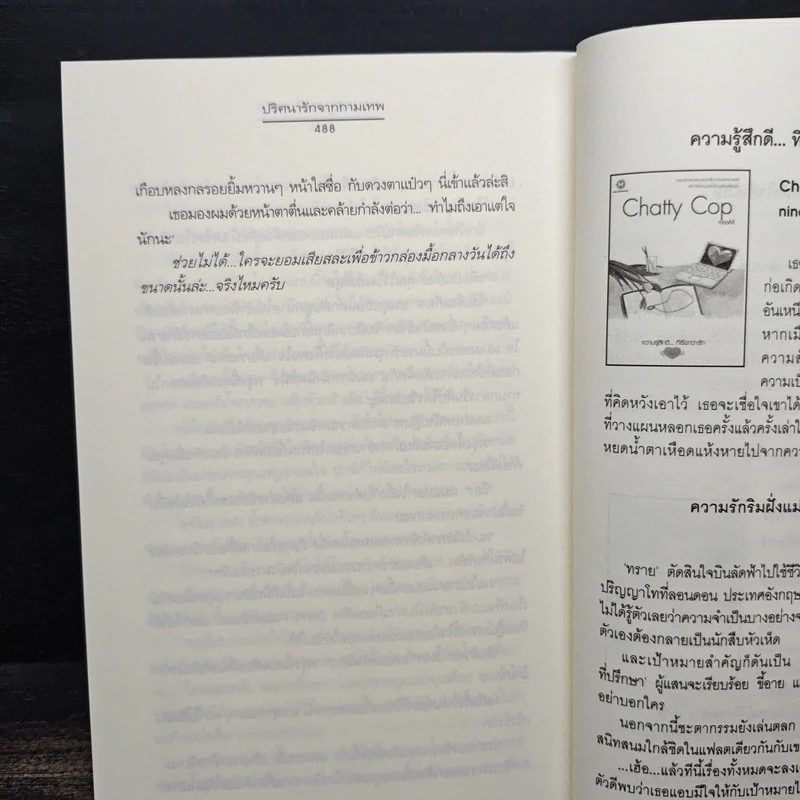 ปริศนารักจากกามเทพ
488
เกือบหลงกลรอยยิ้มหวานๆ หน้าใสซื่อ กับดวงตาแป๋วๆ นี่เข้าแล้วล่ะสิ
เธอมองผมด้วยหน้าตาตื่นและคล้ายกำลังต่อว่า... ทำไมถึงเอาแต่ใจ
นักนะ'
ช่วยไม่ได้...ใครจะยอมเสียสละเพื่อข้าวกล่องมื้อกลางวันได้ถึง
ขนาดนั้นล่ะ...จริงไหมครับ
ความรู้สึกดี... ที่
Chatty Cop
ความรู้สึกดี... ที่เรียกว่ารัก
Ch
nin
เธอ
ก่อเกิด
อันเหนี
หากเมื
ความสั
ความเป็
ที่คิดหวังเอาไว้ เธอจะเชื่อใจเขาได้
ที่วางแผนหลอกเธอครั้งแล้วครั้งเล่า
หยดน้ำตาเหือดแห้งหายไปจากคว
ความรักริมฝั่งแม่
'ทราย' ตัดสินใจบินลัดฟ้าไปใช้ชีวิ
ปริญญาโทที่ลอนดอน ประเทศอังกฤษ
ไม่ได้รู้ตัวเลยว่าความจำเป็นบางอย่างจ
ตัวเองต้องกลายเป็นนักสืบหัวเห็ด
และเป้าหมายสำคัญก็ดันเป็น
ที่ปรึกษา' ผู้แสนจะเรียบร้อย ขี้อาย แ
อย่าบอกใคร
นอกจากนี้ชะตากรรมยังเล่นตลก
สนิทสนมใกล้ชิดในแฟลตเดียวกันกับเข
...เฮ้อ...แล้วทีนี้เรื่องทั้งหมดจะลงเ
ตัวดีพบว่าเธอแอบมีใจให้กับเป้าหมายไ